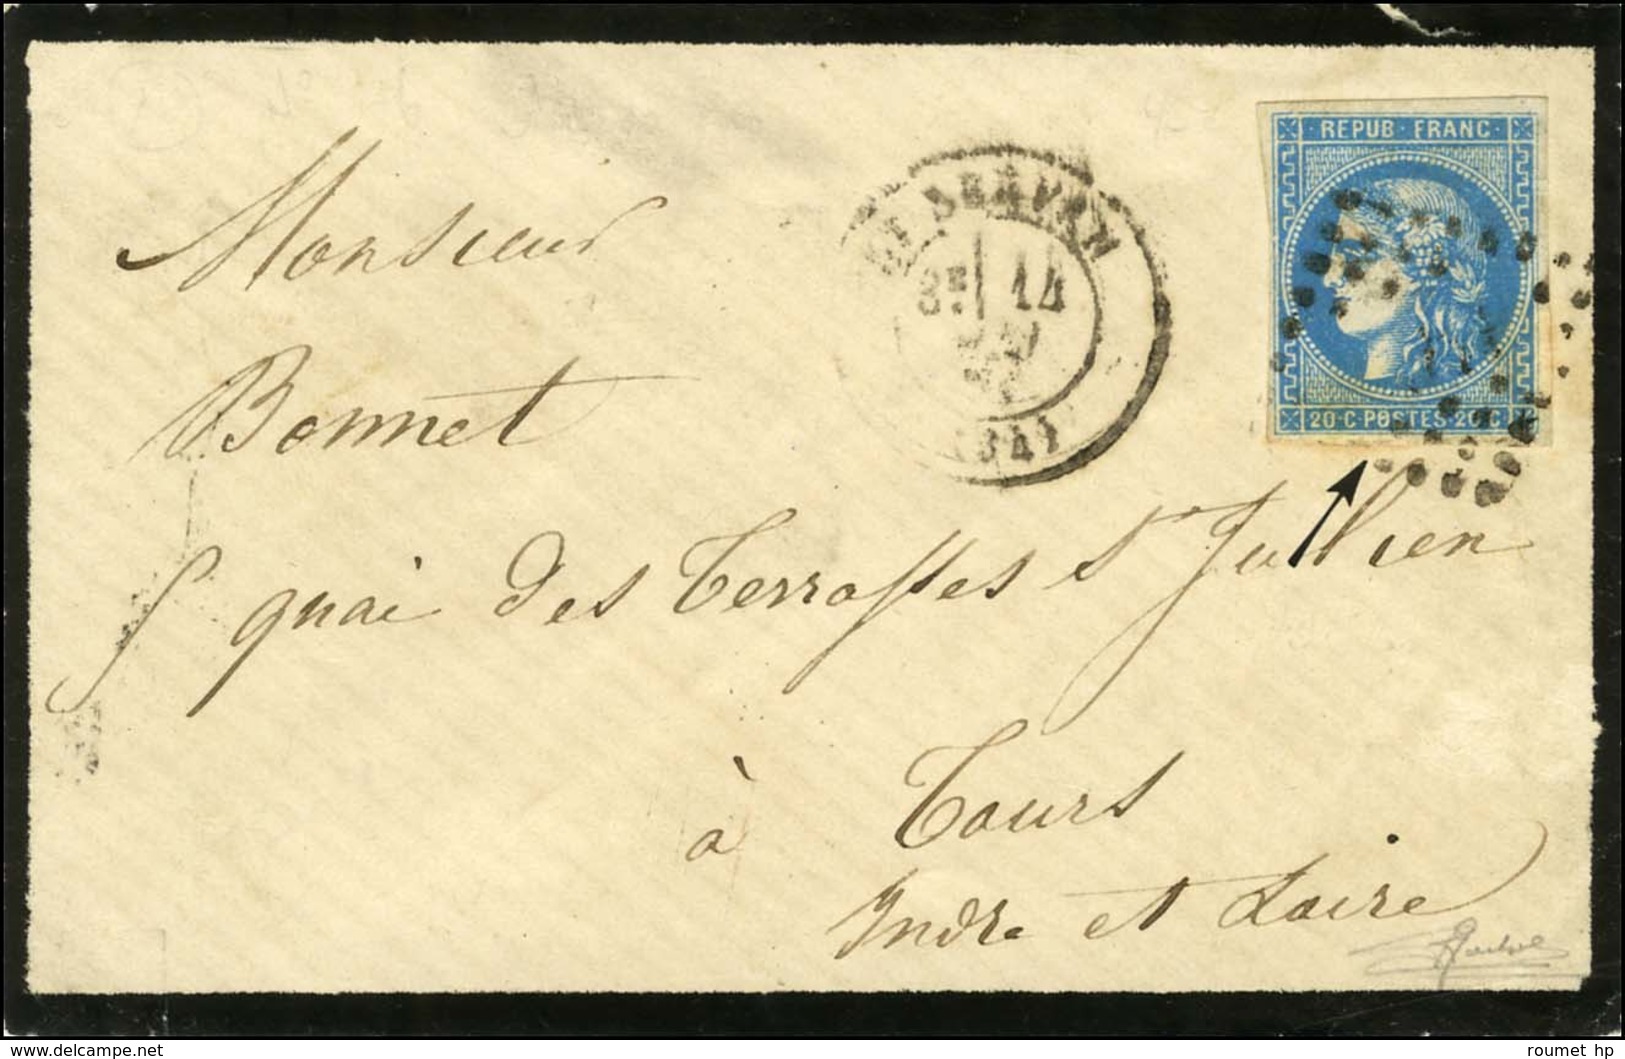 REPUB · FRANC ·
20 · C · POSTES · 20 · C
14
(34)
Monsieur
Bonnet
5 quai des Terrasses St Jullien
à Tours
Indre et Loire
www.delcampe.net
roumet hp